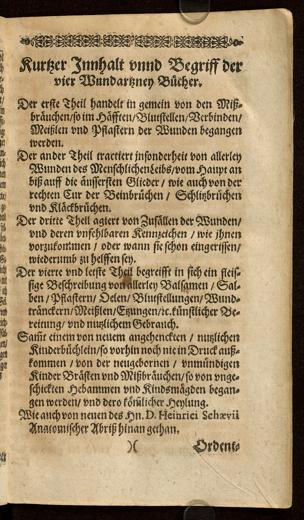 Kurtzer Jnnhalt vnnd Begriff der
vier Wundartzney Bücher.
Der erste Theil handelt in gemein von den Miß-
bräuchen/so im Häfften/Blustellen/Verbinden/
Meißlen vnd Pflastern der Wunden begangen
werden.
Der ander Theil tractiert jnsonderheit von allerley
Wunden des Menschlichen Leibs/vom Haupt an
biß auff die äussersten Glieder / wie auch von der
rechten Cur der Beinbrüchen / Schlitzbrüchen
vnd Kläckbrüchen.
Der dritte Theil agiert von Zufällen der Wunden/
vnd deren vnfehlbaren Kennzeichen / wie jhnen
vorzukommen / oder wann sie schon eingerissen/
wiederumb zu helffen sey.
Der vierte vnd letste Theil begreifft in sich ein fleis-
sige Beschreibung von allerley Balsamen / Sal-
ben / Pflastern / Oelen / Blustellungen / Wund-
tränckern / Meißlen / Etzungen /ꝛc. künstlicher Be-
reitung / vnd nutzlichem Gebrauch.
Samt einem von neuem angehenckten / nutzlichen
Kinderbüchlein / so vorhin noch nie in Druck auß-
kommen / von der neugebornen / vnmündigen
Kinder Brästen vnd Mißbräuchen / so von vnge-
schickten Hebammen vnd Kindsmägden began-
gen werden / vnd dero köstlicher Heylung.
Wie auch von neuen des Hn. D. Heinrici Schævii
Anatomischer Abriß hinan gethan.
)( Ordent-